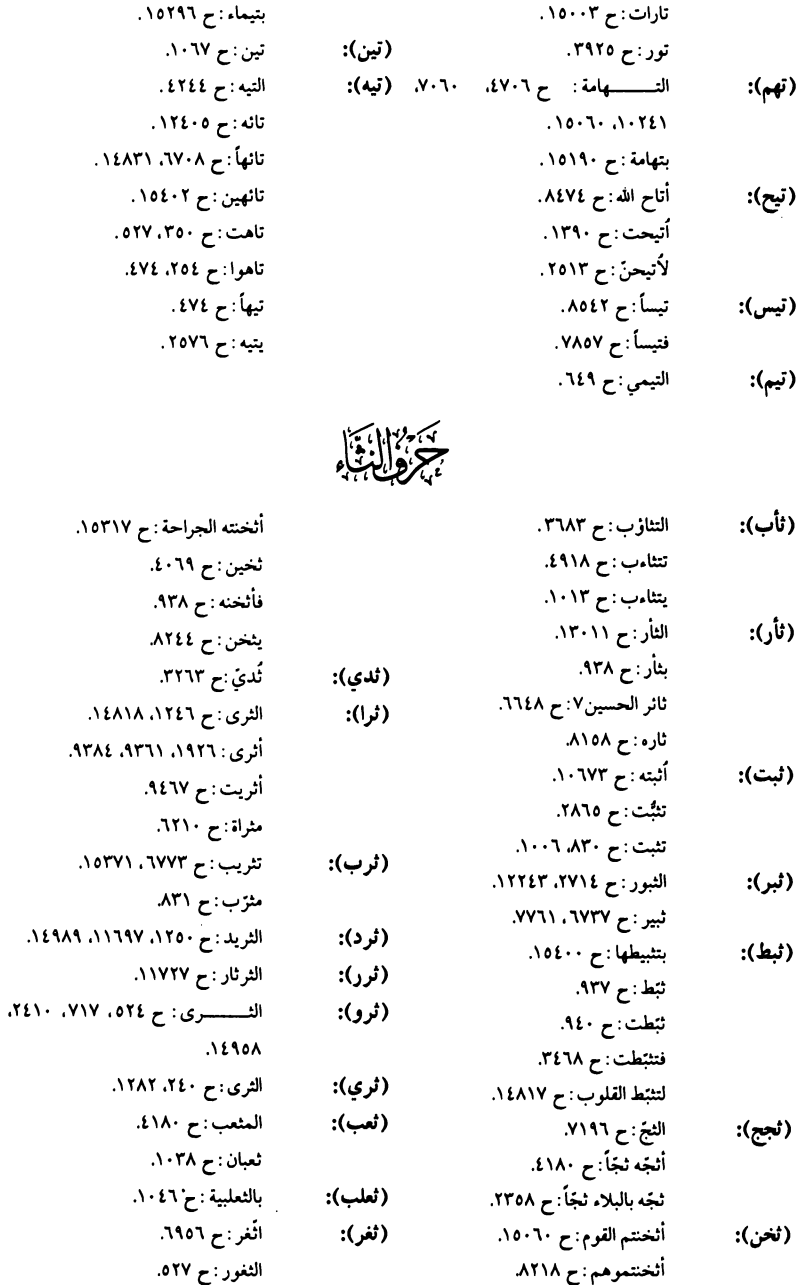 تارات: ح ١٥٠٠٣.
تور: ح ٣٩٢٥.
(تهم): التـــهامة: ح ٤٧٠٦، ٧٠٦٠،
١٠٢٤١، ١٥٠٦٠.
بتهامة: ح ١٥١٩٠.
(تيح): أتاح الله: ح ٨٤٧٤.
أُتيحت: ح ١٣٩٠.
لأتيحنّ: ح ٢٥١٣.
(تيس): تيساً: ح ٨٥٤٢.
فتيساً: ح ٧٨٥٧.
(تيم): التيمي: ح ٦٤٩.
بتيماء: ح ١٥٢٩٦.
(تين): تين: ح ١٠٦٧.
(تيه): التيه: ح ٤٢٤٤.
تائه: ح ١٢٤٠٥.
تائهاً: ح ٦٧٠٨، ١٤٨٣١.
تائهين: ح ١٥٤٠٢.
تاهت: ح ٣٥٠، ٥٢٧.
تاهوا: ح ٢٥٤، ٤٧٤.
تيهاً: ح ٤٧٤.
يتيه: ح ٢٥٧٦.
حَرْفُ الثَّاء
(ثأب): التثاؤب: ح ٣٦٨٣.
تتثاءب: ح ٤٩١٨.
يتثاءب: ح ١٠١٣.
(ثأر): الثأر: ح ١٣٠١١.
بثأر: ح ٩٣٨.
ثائر الحسين٧: ح ٦٦٤٨.
ثاره: ح ٨١٥٨.
(ثبت): أُثبته: ح ١٠٦٧٣.
تثبُّت: ح ٢٨٦٥.
تثبت: ح ٨٣٠، ١٠٠٦.
(ثبر): الثبور: ح ٢٧١٤، ١٢٢٤٣.
ثبير: ح ٦٧٣٧، ٧٧٦١.
(ثبط): بتثبيطها: ح ١٥٤٠٠.
ثبّط: ح ٩٣٧.
ثبّطت: ح ٩٤٠.
فتثبّطت: ح ٣٤٦٨.
لتثبّط القلوب: ح ١٤٨١٧.
(ثجج): الثجّ: ح ٧١٩٦.
أثجّه ثجّاً: ح ٤١٨٠.
ثجّه بالبلاء ثجّاً: ح ٢٣٥٨.
(ثخن): أثخنتم القوم: ح ١٥٠٦٠.
أثخنتموهم: ح ٨٢١٨.
أثخنته الجراحة: ح ١٥٣١٧.
ثخين: ح ٤٠٦٩.
فأثخنه: ح ٩٣٨.
يثخن: ح ٨٢٤٤.
(ثدي): ثُديّ: ح ٣٢٦٣.
(ثرا): الثرى: ح ١٢٤٦، ١٤٨١٨.
أثرى: ١٩٢٦، ٩٣٦١، ٩٣٨٤.
أثريت: ح ٩٤٦٧.
مثراة: ح ٦٢١٠.
(ثرب): تثريب: ح ٦٧٧٣، ١٥٣٧١.
مثرّب: ح ٨٣١.
(ثرد): الثريد: ح ١٢٥٠، ١١٦٩٧، ١٤٩٨٩.
(ثرر): الثرثار: ح ١١٧٢٧.
(ثرو): الثـــرى: ح ٥٢٤، ٧١٧، ٢٤١٠،
١٤٩٥٨.
(ثري): الثرى: ح ٢٤٠، ١٢٨٢.
(ثعب): المثعب: ح ٤١٨٠.
ثعبان: ح ١٠٣٨.
(ثعلب): بالثعلبية: ح ١٠٤٦.
(ثغر): اثّغر: ح ٦٩٥٦.
الثغور: ح ٥٢٧.